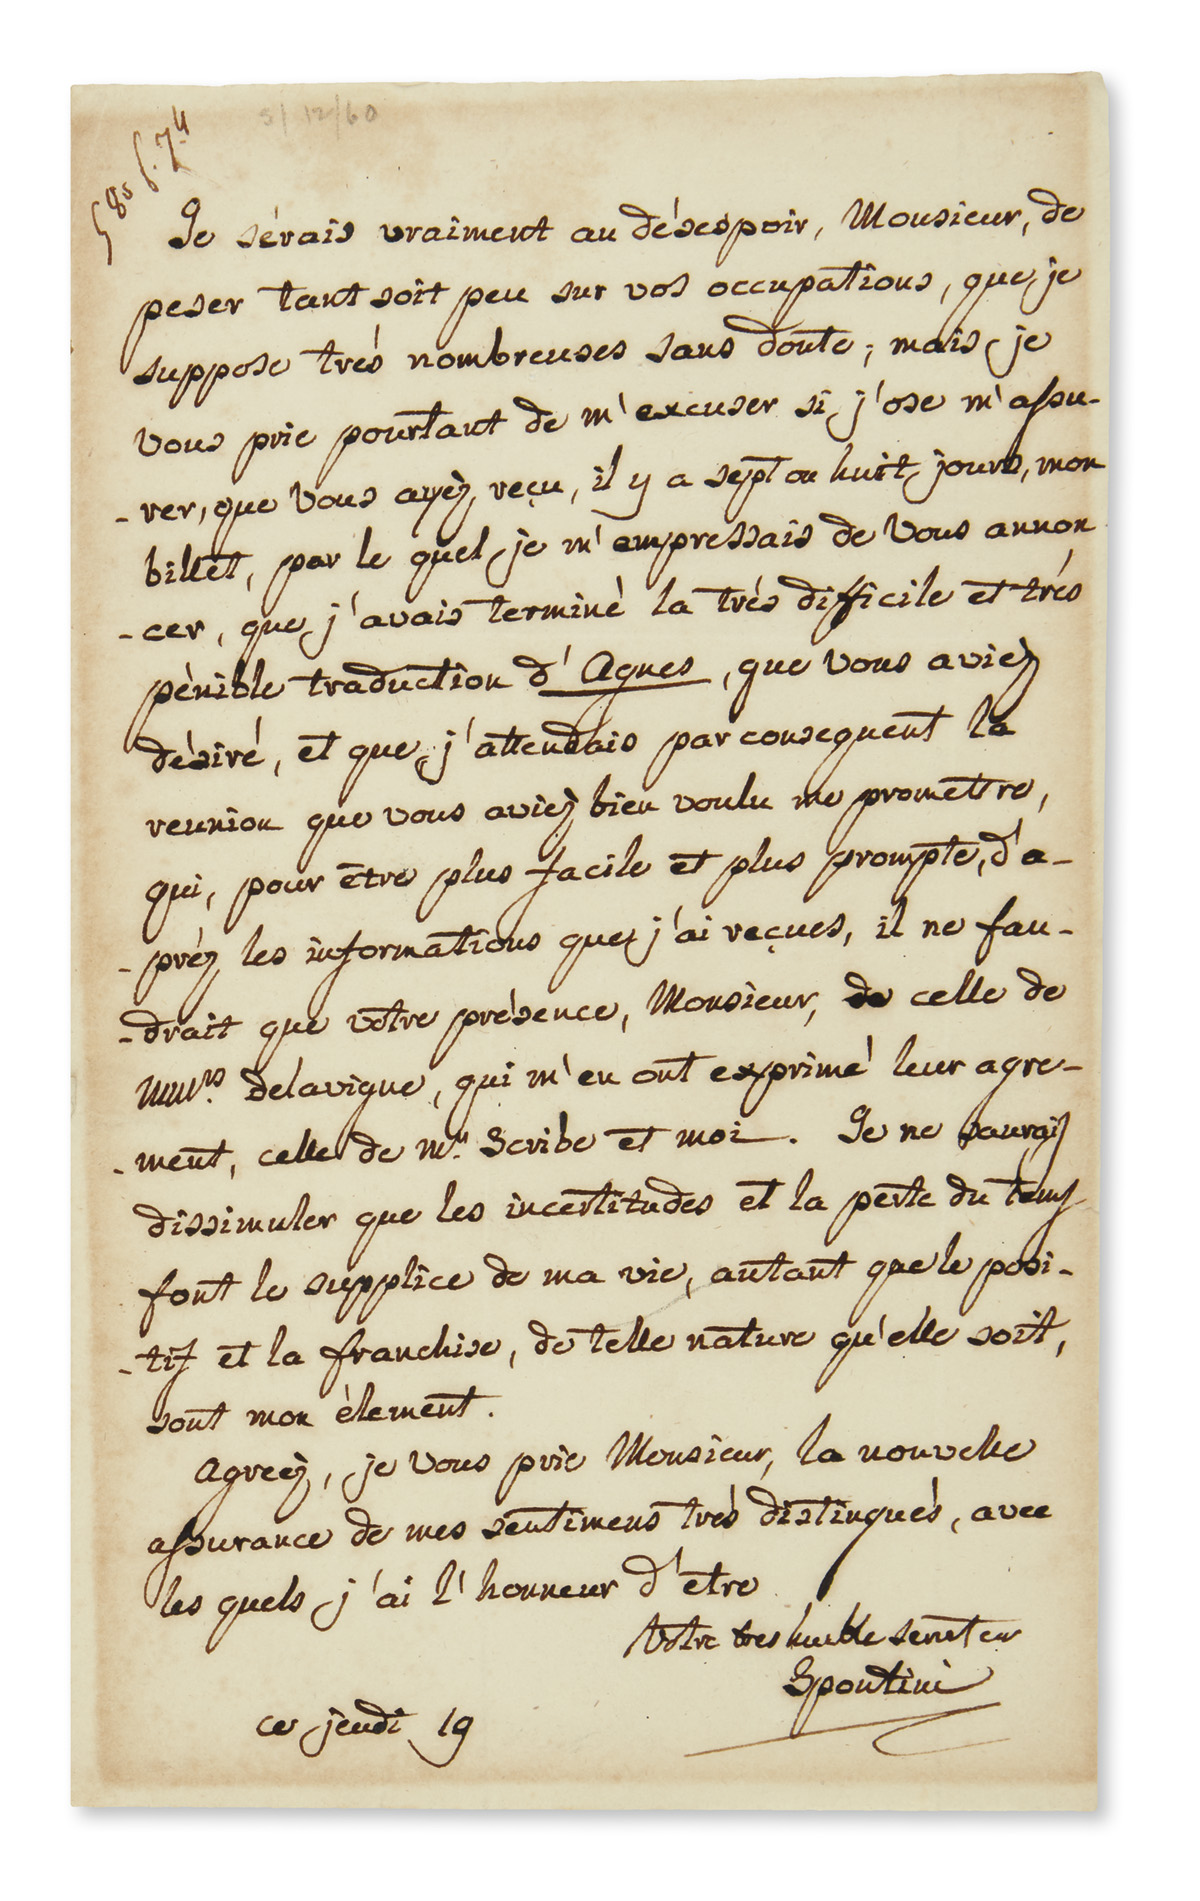 5/12/60
Je sérais vraiment au désespoir, Monsieur, de
peser tant soit peu sur vos occupations, que je
suppose trés nombreuses sans doute; mais je
vous prie pourtant de m'excuser si j'ose m'assu-
-rer, que vous ayéz reçu, il y a sept ou huit jours, mon
billet, par le quel je m'empressais de vous annon
-cer, que j'avais terminé la trés difficile et trés
pénible traduction d'Agnes, que vous aviez
désiré, et que j'attendais par consequent la
reunion que vous aviez bien voulu me promettre,
qui, pour être plus facile et plus prompte, d'a-
-préz les informations que j'ai reçues, il ne fau-
-drait que votre présence, Monsieur, de celle de
MMrs. Delavigne, qui m'en ont exprimé leur agre-
-ment, celle de Mr. Scribe et moi. Je ne saurais
dissimuler que les incertitudes et la perte du tems
font le supplice de ma vie, autant que le posi-
-tif et la franchise, de telle nature qu'elle soit,
sont mon élement.
Agreéz, je vous prie Monsieur, la nouvelle
assurance de mes sentimens trés distingués, avec
les quels j'ai l'honneur d'etre
Votre tres humble serviteur
Spontini
ce jeudi 19